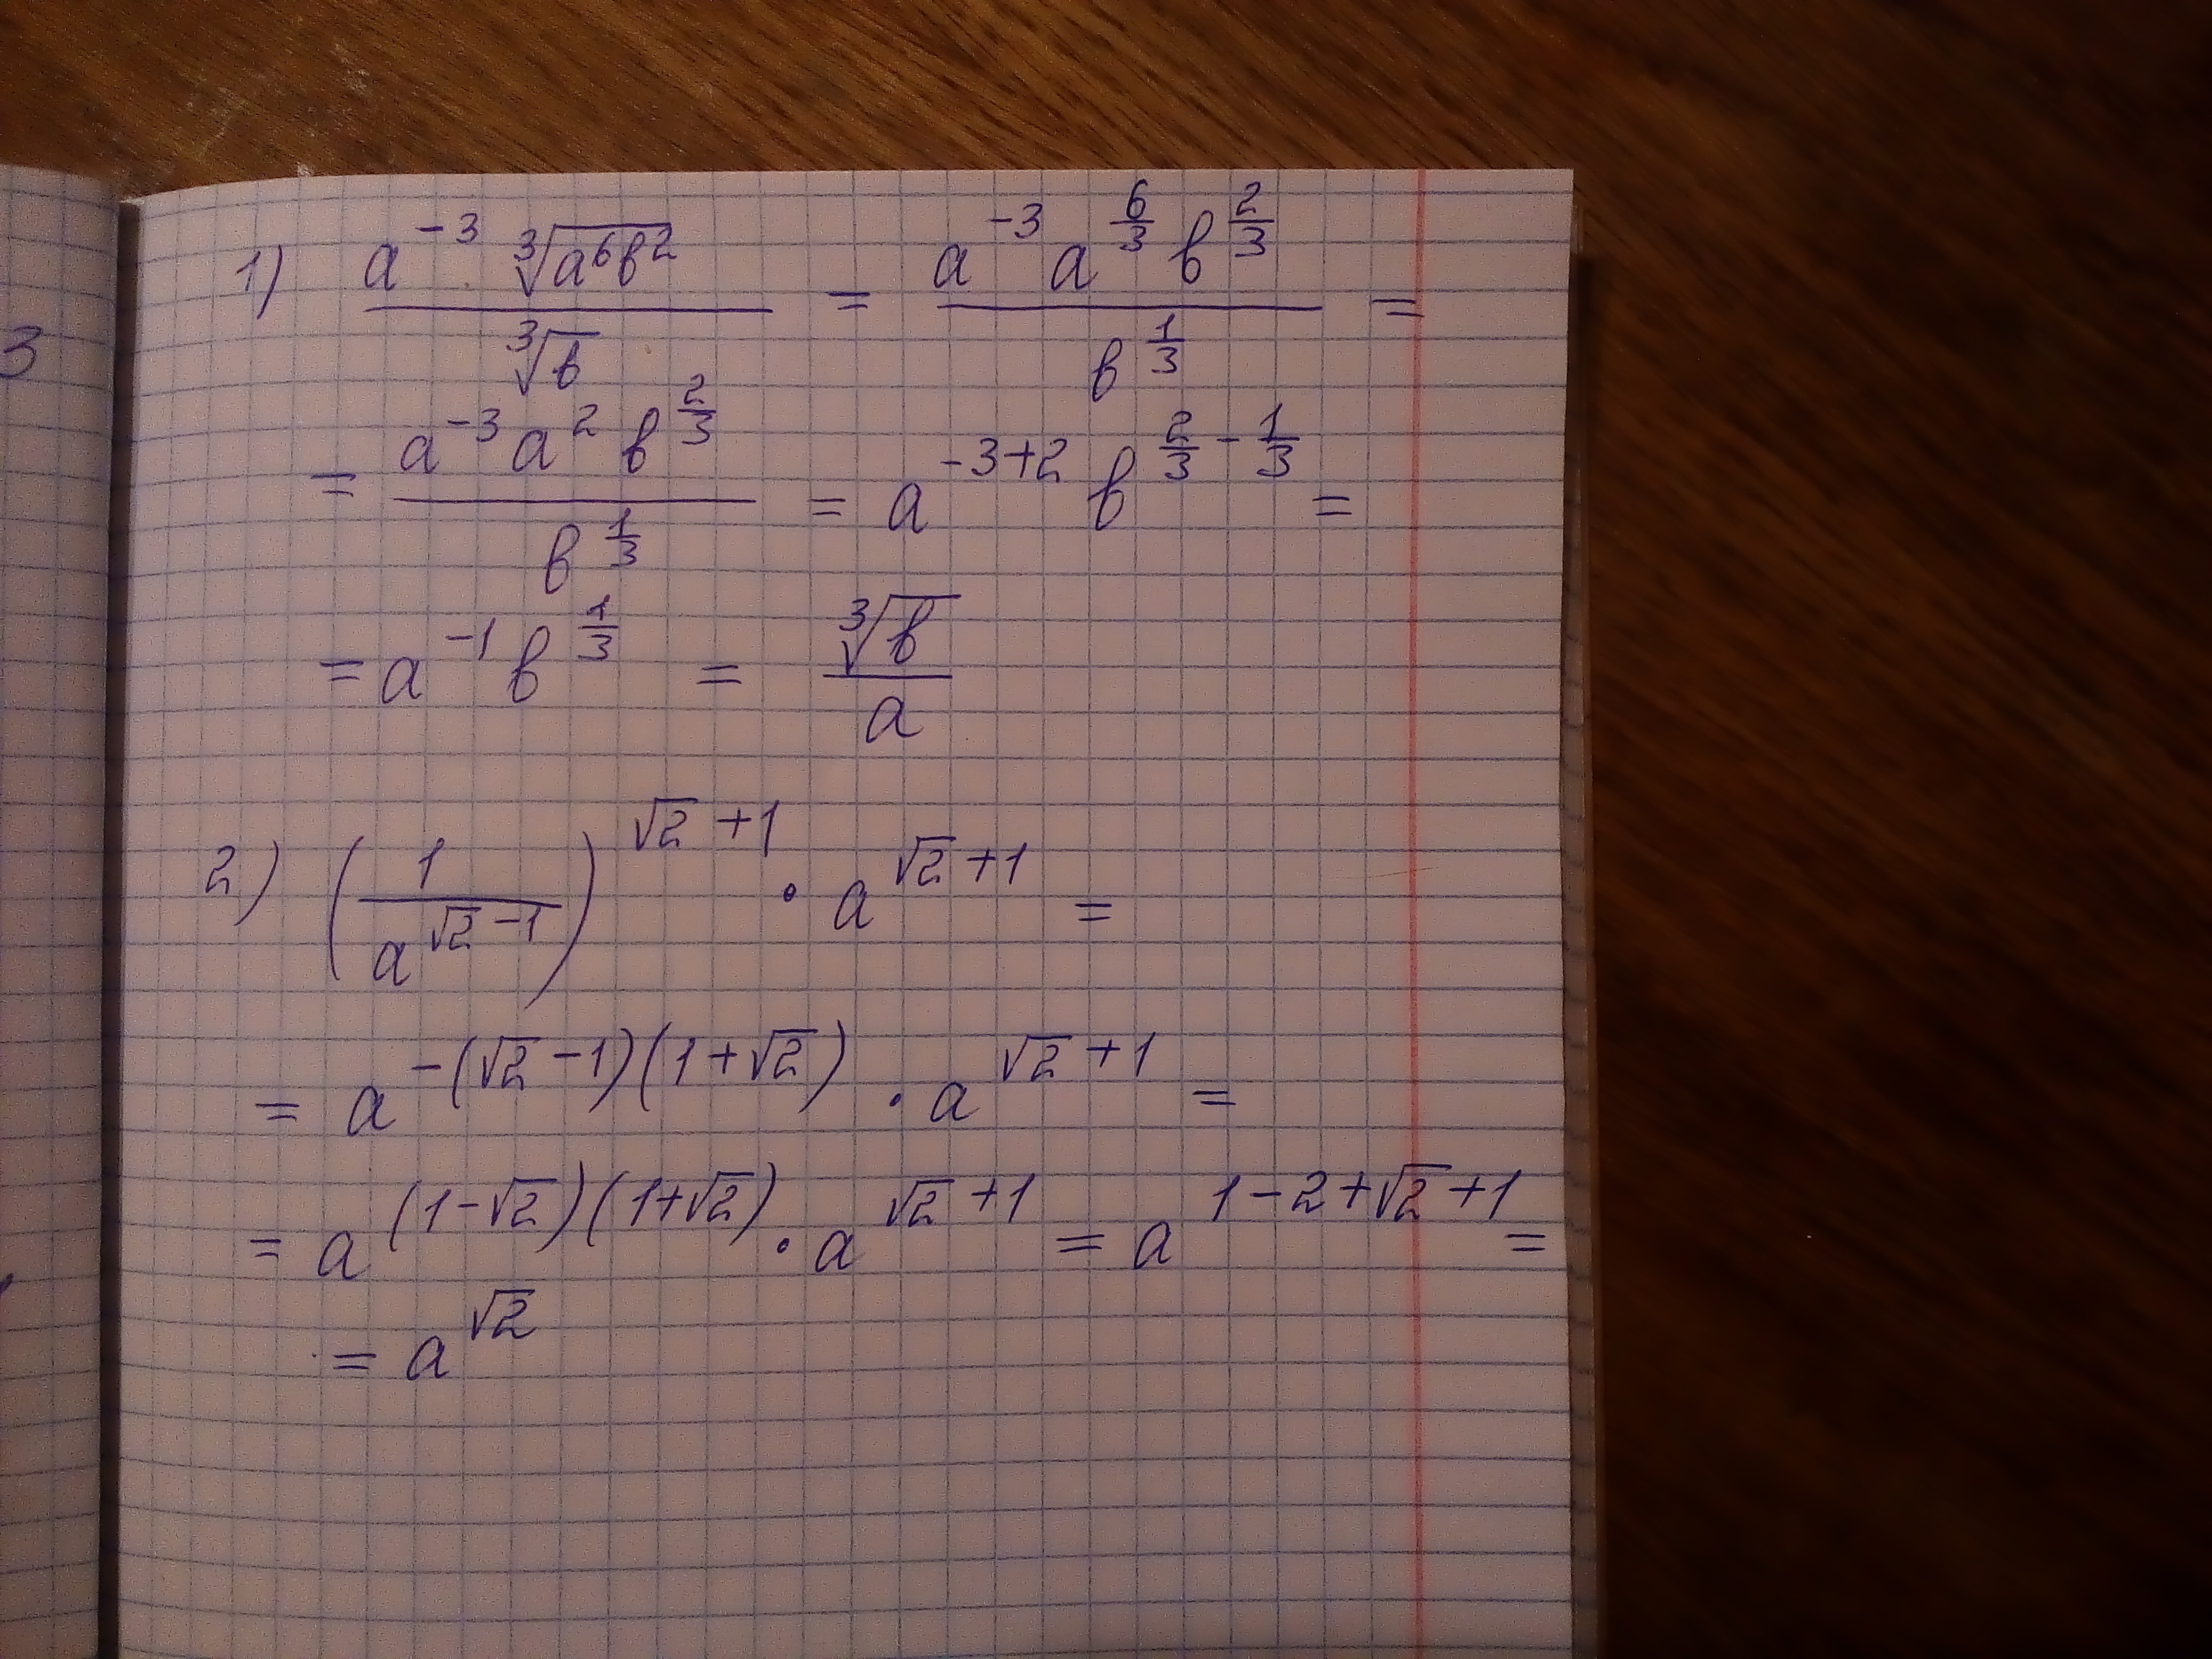 3
1) a^{-3} ∛(a⁶b²) / ∛b = a^{-3} a^{6/3} b^{2/3} / b^{1/3} =
= a^{-3} a² b^{2/3} / b^{1/3} = a^{-3+2} b^{2/3 - 1/3} =
= a^{-1} b^{1/3} = ∛b / a
2) (1 / a^{√2 -1})^{√2 +1} · a^{√2 +1} =
= a^{-(√2 -1)(1+√2)} · a^{√2 +1} =
= a^{(1-√2)(1+√2)} · a^{√2 +1} = a^{1-2+√2 +1} =
= a^{√2}